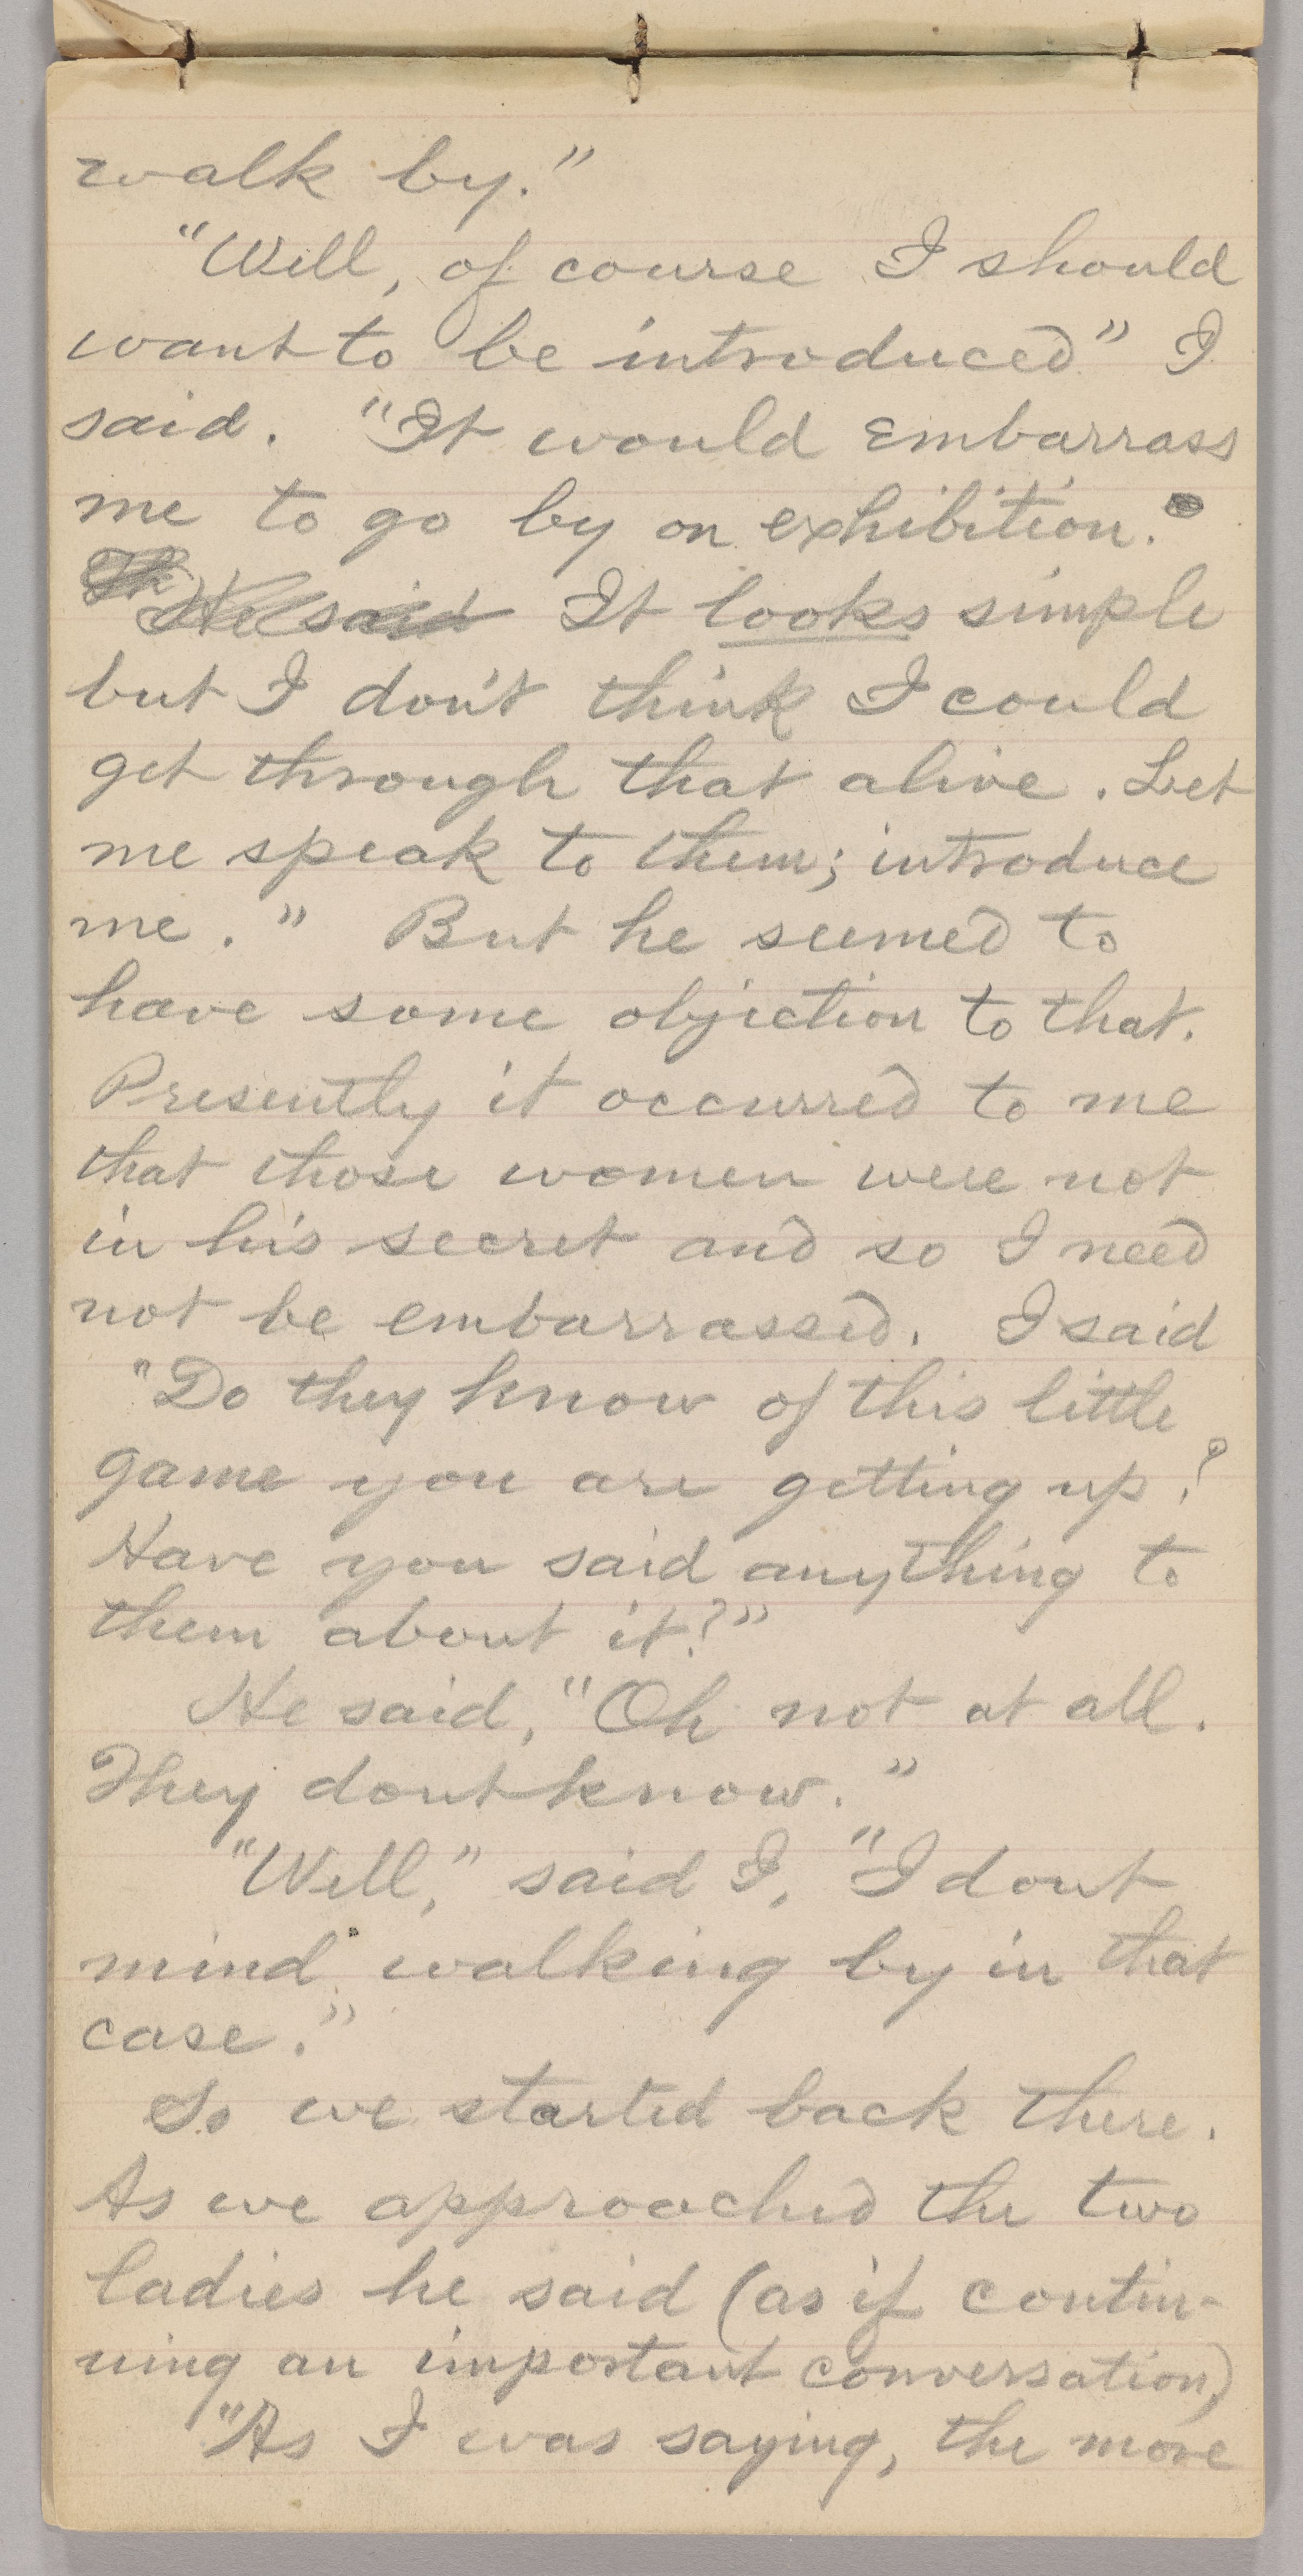 walk by."
"Well, of course I should
want to be introduced" I
said. "It would embarrass
me to go by on exhibition.
He said It looks simple
but I don't think I could
get through that alive. Let
me speak to them; introduce
me." But he seemed to
have some objection to that.
Presently it occurred to me
that those women were not
in his secret and so I need
not be embarrassed. I said
"Do they know of this little
game you are getting up?
Have you said anything to
them about it?"
He said, "Oh not at all.
They dont know."
"Well," said I, "I dont
mind walking by in that
case."
So we started back there.
As we approached the two
ladies he said (as if contin-
uing an important conversation)
"As I was saying, the more